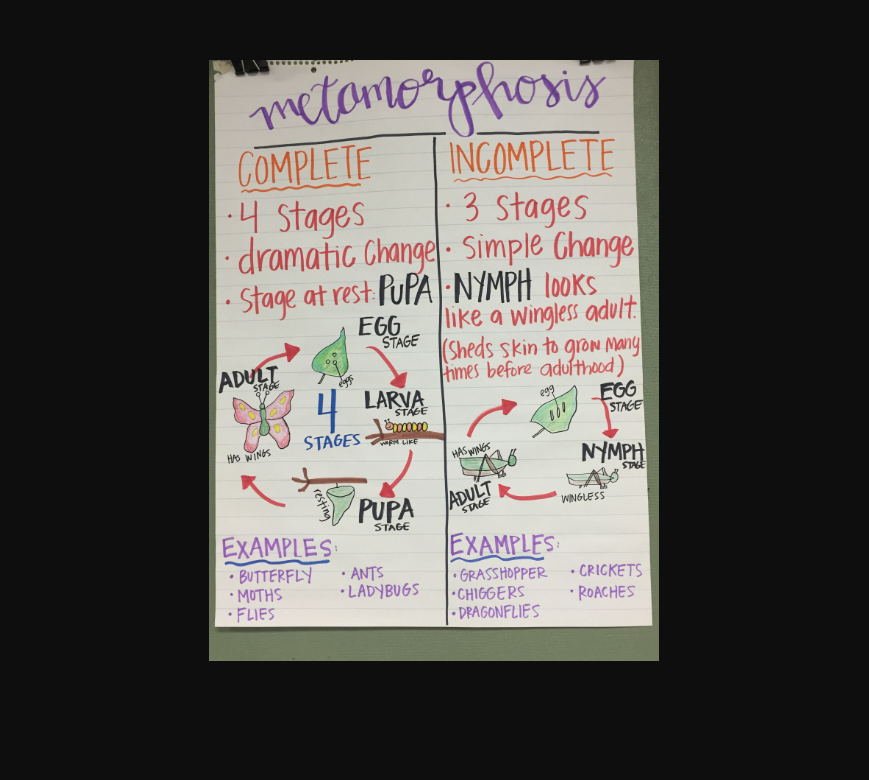 metamorphosis
COMPLETE
· 4 Stages
· dramatic Change
· Stage at rest: PUPA
EGG
STAGE
eggs
ADULT
STAGE
HAS WINGS
4
STAGES
LARVA
STAGE
WORM LIKE
resting
PUPA
STAGE
EXAMPLES:
· BUTTERFLY
· MOTHS
· FLIES
· ANTS
· LADYBUGS
INCOMPLETE
· 3 Stages
· Simple Change
· NYMPH looks
like a wingless adult.
(Sheds skin to grow many
times before adulthood)
egg
EGG
STAGE
HAS WINGS
NYMPH
STAGE
WINGLESS
ADULT
STAGE
EXAMPLES:
· GRASSHOPPER
· CHIGGERS
· DRAGONFLIES
· CRICKETS
· ROACHES